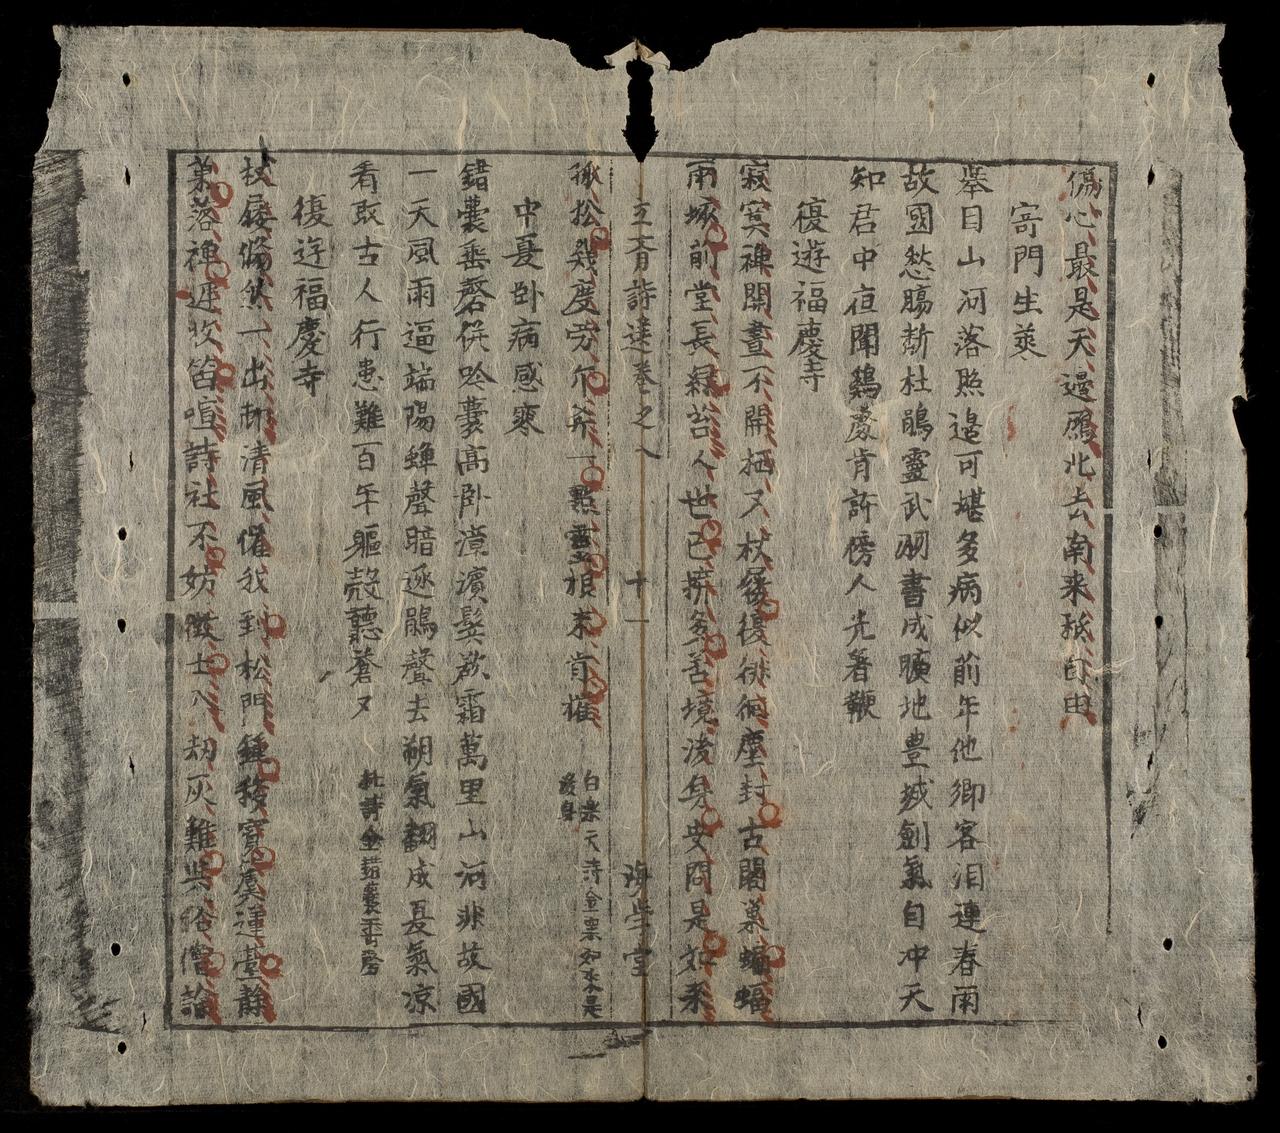 傷心最是天邊鴈北去南来秪自由
寄門生萊
舉目山河落照邉可堪多病似前年他鄉客泪連春雨
故國愁膓斷杜鵑靈武朔書成曠地豊城劍氣自冲天
知君中夜聞鷄處肯許傍人先着鞭
復遊福慶寺
寂寞禅関晝不開栖又杖屨復徘徊塵封古閣巢蝙蝠
雨啄前堂長綠苔人也已揩多苦境後身史問是如来
立斉詩迸巻之八 十一 海學堂
揪松幾度劳斤斧一點灵根末肯摧 白樂天詩金粟如来是後身
中夏卧病感寒
錯囊垂罄倂吟囊高卧漳濱髩欲霜萬里山河非故國
一天風雨逼端陽蝉聲暗逐鵑聲去朔氣翻成夏氣凉
看取古人行患難百年軀殼聽蒼又 杜詩金錯囊垂罄
復迕福慶寺
杖屨翛然一出郊清風催我到松門鐘殘寳奠蓮臺静
菓落禅遅牧笛喧詩社不妨徴士八劫灰難與俗僧論